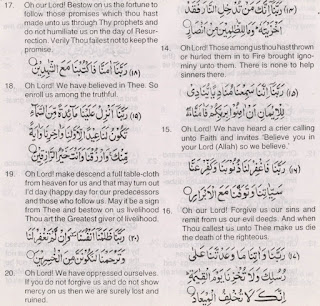 رَبَّنَا إِنَّكَ مَنْ تُدْخِلِ النَّارَ فَقَدْ
أَخْزَيْتَهُ وَمَا لِلظّٰلِمِينَ مِنْ أَنْصَارٍ
14. Oh Lord! Those among us thou hast thrown
or hurled them in to Fire brought igno-
miny unto them. There is none to help
sinners there.
رَبَّنَا إِنَّنَا سَمِعْنَا مُنَادِيًا يُنَادِي
لِلْإِيمَانِ أَنْ آمِنُوا بِرَبِّكُمْ فَآمَنَّا
15. Oh Lord! We have heard a crier calling
unto Faith and invites 'Believe you in
your Lord (Allah) so we believe.'
رَبَّنَا فَاغْفِرْ لَنَا ذُنُوبَنَا وَكَفِّرْ عَنَّا
سَيِّئَاتِنَا وَتَوَفَّنَا مَعَ الْأَبْرَارِ
16. Oh our Lord! Forgive us our sins and
remit from us our evil deeds. And when
Thou callest us unto Thee make us die
the death of the righteous.
رَبَّنَا وَآتِنَا مَا وَعَدْتَنَا عَلٰى
رُسُلِكَ وَلَا تُخْزِنَا يَوْمَ الْقِيٰمَةِ
إِنَّكَ لَا تُخْلِفُ الْمِيعَادَ
17. Oh our Lord! Bestow on us the fortune to
follow those promises which thou hast
made unto us through Thy prophets and
do not humiliate us on the day of Resur-
rection. Verily Thou failest not to keep the
promise.
رَبَّنَا آمَنَّا فَاكْتُبْنَا مَعَ الشّٰهِدِينَ
18. Oh Lord! We have believed in Thee. So
enroll us among the truthful.
رَبَّنَا أَنْزِلْ عَلَيْنَا مَائِدَةً مِنَ السَّمَاءِ
تَكُونُ لَنَا عِيدًا لِأَوَّلِنَا وَآخِرِنَا وَآيَةً
مِنْكَ وَارْزُقْنَا وَأَنْتَ خَيْرُ الرَّازِقِينَ
19. Oh Lord! make descend a full table-cloth
from heaven for us and that may turn out
I'd day (happy day for our predecessors
and those who follow us. May it be a sign
from Thee and bestow on us livelihood
Thou art the Greatest giver of livelihood.
رَبَّنَا ظَلَمْنَا أَنْفُسَنَا وَإِنْ لَمْ تَغْفِرْ لَنَا
وَتَرْحَمْنَا لَنَكُونَنَّ مِنَ الْخٰسِرِينَ
20. Oh Lord! We have oppressed ourselves.
If you do not forgive us and do not show
mercy on us then we are surely lost and
ruined.